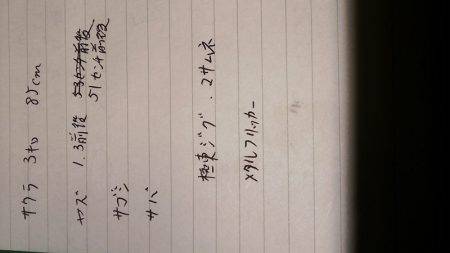 サクラ 3キロ 85cm
ヤズ 1.3前後 53センチ前後
51センチ前後
サゴシ
サバ
極東ジグ . 2サムネ
メタルフリッカー